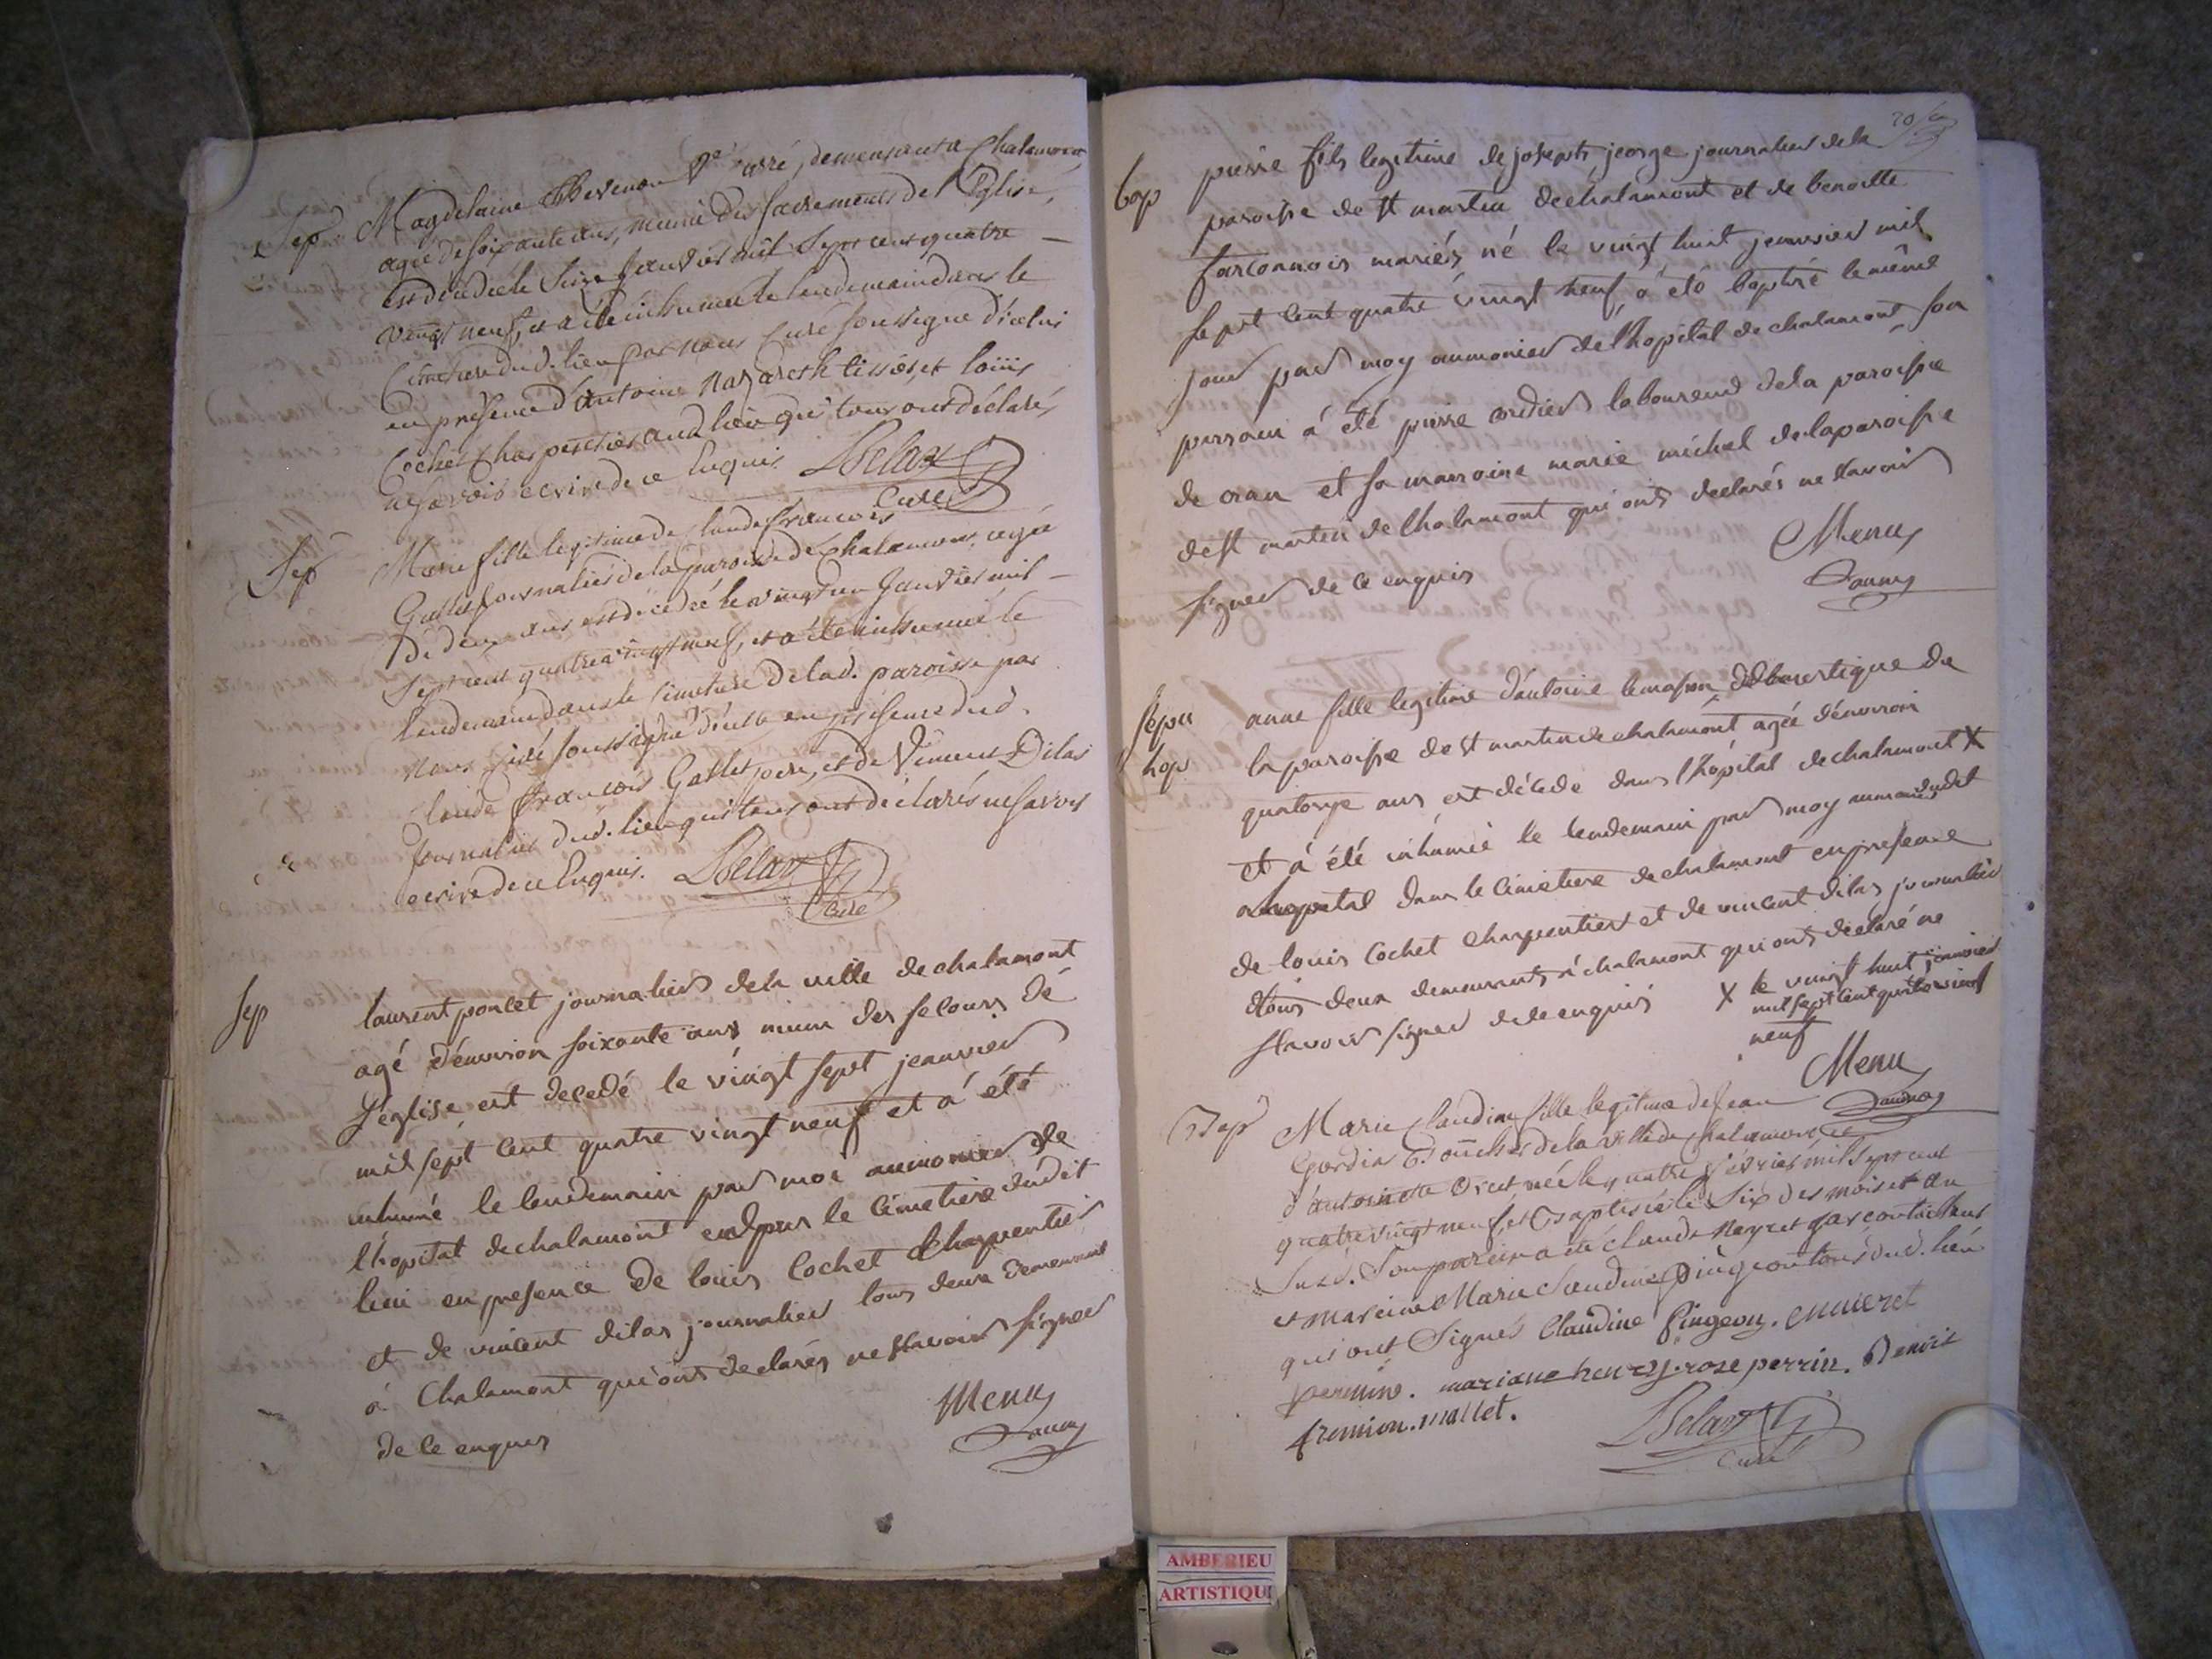 Sep Magdelaine Thevenon Ve carré, demeurant a Chalamont
agée de soixante ans, munie des sacrements de l'Eglise,
est décedée le Seize Janvier mil Sept cens quatre
vingt neuf, et a été inhumée le lendemain dans le
Cimetiere dud. lieu par nous Curé soussigné d'icelui
en présence d'Antoine Nazareth tissier, et Loüis
Cochet Charpentier aud. lieu qui tous ont déclarés
ne savoir ecrire de ce Enquis Delaz
Curé
Sep Marie fille legitime de Claude François
Gallet Journalier de la paroisse de Chalamont, agée
de deux ans est décedée le vingt un Janvier mil
Sept cens quatre vingt neuf, et a été inhumée le
lendemain dans le Cimetiere de lad. paroisse par
Nous Curé soussigné d'icelle en présence dud.
Claude François Gallet pere, et de Vincent Dilas
Journalier dud. lieu qui tous ont déclarés ne savoir
ecrire de ce Enquis. Delaz
Curé
Sep laurent poncet journalier de la ville de chalamont
agé d'environ soixante ans muni des secours de
l'église est decedé le vingt sept jeanvier
mil sept cent quatre vingt neuf et á été
inhumé le lendemain par moi aumonier de
l'hopital de chalamont dans le cimetiere dudit
lieu en presence de louis Cochet Charpentier
et de vincent dilas journalier tous deux demeurant
á Chalamont qui ont declarés ne sçavoir signer
de ce enquis
Menu
aum
20
bap pierre fils legitime de joseph jeorge journalier de la
paroisse de st martin de chalamont et de benoitte
farconnois mariés né le vingt huit jeanvier mil
sept cent quatre vingt neuf, á été baptisé le même
jour par moy aumonier de l'hopital de chalamont son
parrain á été pierre cordier laboureur de la paroisse
de cran et sa marroine marie michel de la paroisse
de st martin de Chalamont qui ont declarés ne scavoir
signer de ce enquis
Menu
aum
sepu anne fille legitime d'antoine lemason domestique de
hop la paroisse de st martin de chalamont agée d'environ
quatorze ans est décede dans l'hôpital de chalamont X
et á été inhumée le lendemain par moy aumonier dudit
hopital dans le cimetiere de chalamont en presence
de louis Cochet Charpentier et de vincent dilas journalier
tous deux demeurants á chalamont qui ont déclaré ne
scavoir signer de ce enquis X le vingt huit jeanvier
mil sept cent quatre vingt
neuf
Menu
aum
Bap Marie Claudine fille legitime de Jean
Gordin Boucher de la ville de Chalamont, et
d'antoinette est née le quatre fevrier mil Sept cent
quatre vingt neuf, et Baptisée le Six des mois et an
Susd. Son parein a été Claude
et mareine Marie Claudine Pingeon tous dud. lieu
qui ont Signés Claudine Pingeon.
perrine. mariane henry. rose perrin. Benoit
fremion. mallet.
Delaz
Curé
AMBERIEU
ARTISTIQU